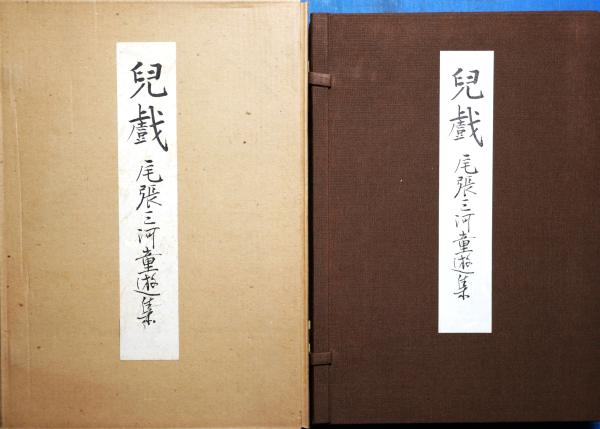 兒戲 尾張三河童遊集
兒戲 尾張三河童遊集